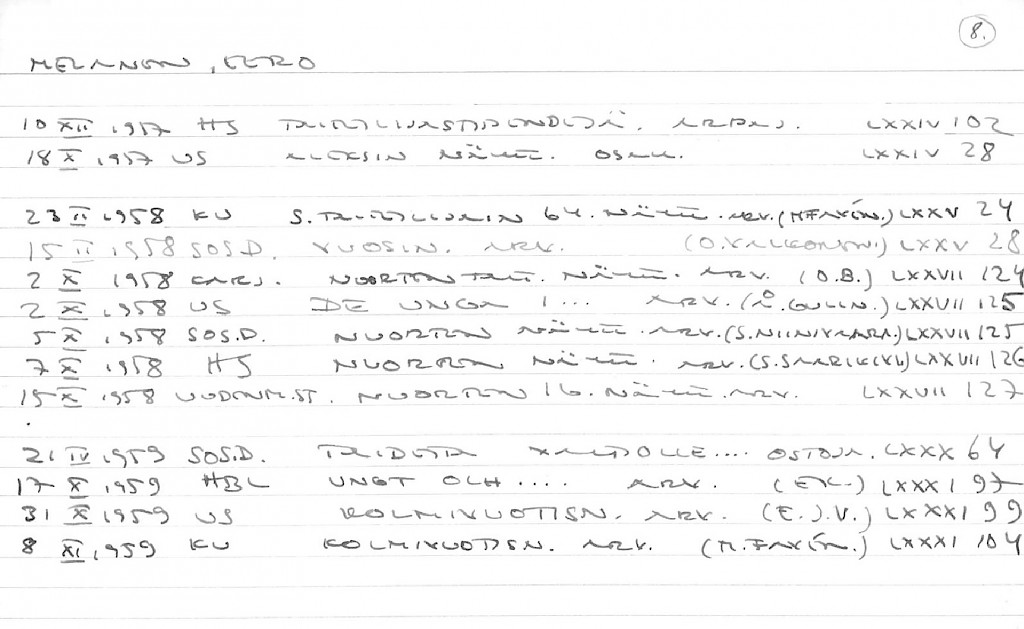 8.
MELANEN, EERO
10 XII 1957 HS TAITEILIJASTIPENDEJÄ. ARPAJ. LXXIV 102
18 X 1957 US ALEKSIN NÄYTT. OSALL. LXXIV 28
23 II 1958 KU S. TAITEILIJAIN 64. NÄYTT. ARV. LXXV 24
15 II 1958 SOS.D. VUOSIN. ARV. (O. VALKONEN.) LXXV 28
2 X 1958 KARJ. NUORTEN TAIT. NÄYTT. ARV. (O.B.) LXXVII 124
2 X 1958 US DE UNGA I ... ARV. (Å. GULIN.) LXXVII 125
5 X 1958 SOS.D. NUORTEN NÄYTT. ARV. (S. NIINIVAARA.) LXXVII 125
7 X 1958 HS NUORTEN NÄYTT. ARV. (S. SAARIKIVI.) LXXVII 126
15 X 1958 UUDENM.ST. NUORTEN 16. NÄYTT. ARV. LXXVII 127
21 IV 1959 SOS.D. TAIDETTA .... OSTOJA. LXXX 64
17 X 1959 HBL UNGT OCH .... ARV. (EK-) LXXXI 97
31 X 1959 US KOLMIVUOTISN. ARV. (E.J.V.) LXXXI 99
8 XI 1959 KU KOLMIVUOTISN. ARV. LXXXI 104